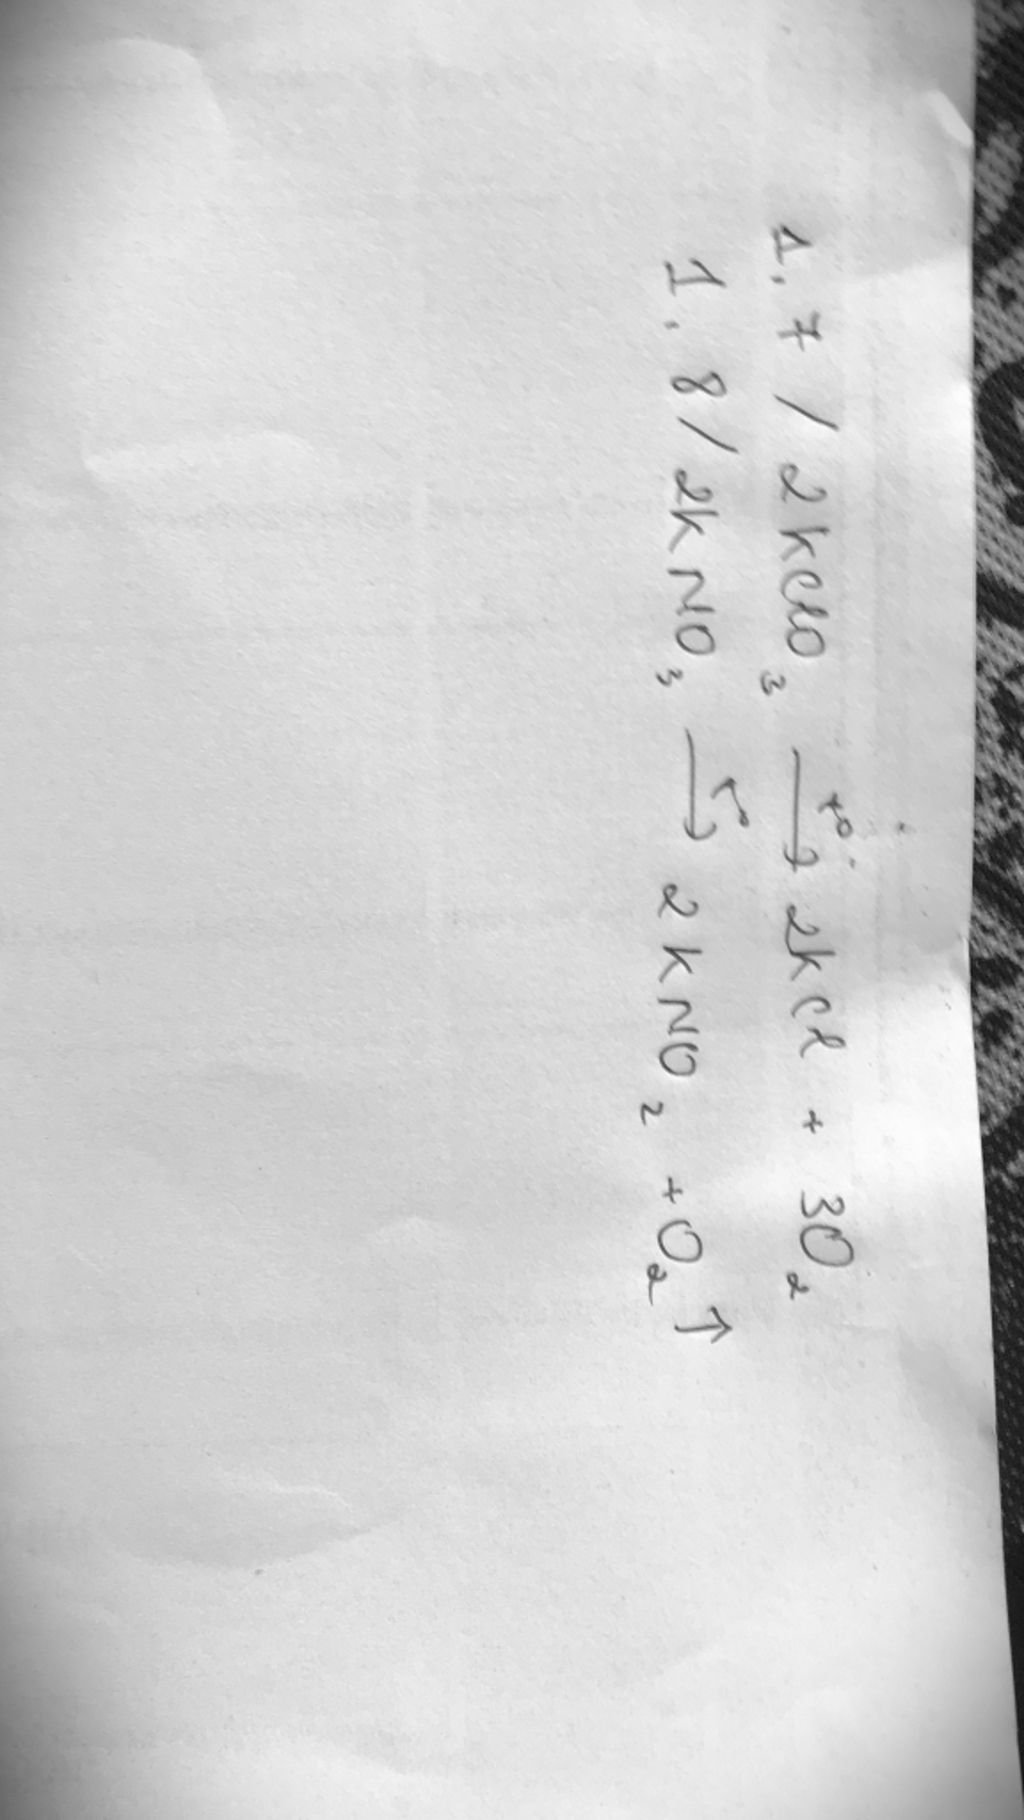 1.7/ 2KClO₃ —t°→ 2KCl + 3O₂
1.8/ 2KNO₃ —t°→ 2KNO₂ + O₂ ↑